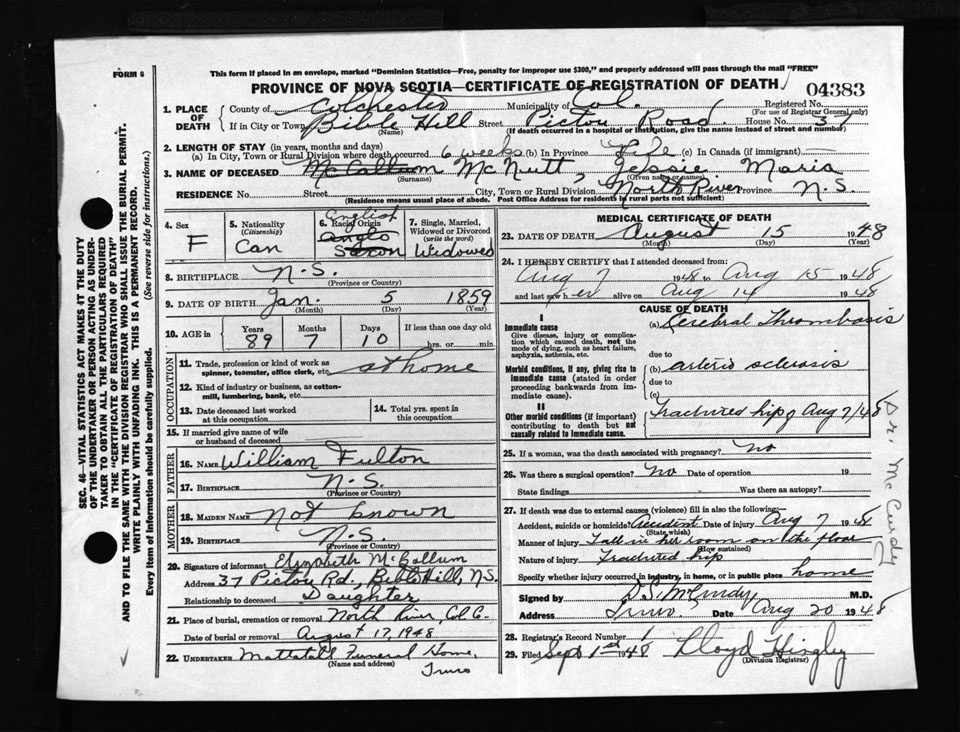 FORM 6
This form if placed in an envelope, marked "Dominion Statistics—Free, penalty for improper use $300," and properly addressed will pass through the mail "FREE"
PROVINCE OF NOVA SCOTIA—CERTIFICATE OF REGISTRATION OF DEATH
04383
1. PLACE OF DEATH
County of Colchester Municipality of Col. Registered No.
(For use of Registrar General only)
If in City or Town Bible Hill Street Pictou Road House No. 37
(Name) (If death occurred in a hospital or institution, give the name instead of street and number)
2. LENGTH OF STAY (in years, months and days)
(a) In City, Town or Rural Division where death occurred 6 weeks (b) In Province Life (c) In Canada (if immigrant) —
3. NAME OF DECEASED McCallum McNutt, Jessie Maria
(Surname) (Given name or names)
RESIDENCE No. Street City, Town or Rural Division North River Province N.S.
(Residence means usual place of abode. Post Office Address for residents in rural parts not sufficient)
4. Sex F
5. Nationality (Citizenship) Can
6. Racial Origin English Anglo Saxon
7. Single, Married, Widowed or Divorced (write the word) Widowed
8. BIRTHPLACE N.S.
(Province or Country)
9. DATE OF BIRTH Jan. 5 1859
(Month) (Day) (Year)
10. AGE in Years 89 Months 7 Days 10 If less than one day old
hrs. or min.
OCCUPATION
11. Trade, profession or kind of work as spinner, teamster, office clerk, etc. at home
12. Kind of industry or business, as cotton-mill, lumbering, bank, etc.
13. Date deceased last worked at this occupation
14. Total yrs. spent in this occupation
15. If married give name of wife or husband of deceased
FATHER
16. NAME William Fulton
17. BIRTHPLACE N.S.
(Province or Country)
MOTHER
18. MAIDEN NAME Not known
19. BIRTHPLACE N.S.
(Province or Country)
20. Signature of informant Elizabeth McCallum
Address 37 Pictou Rd., Bible Hill, N.S.
Relationship to deceased Daughter
21. Place of burial, cremation or removal North River, Col. C.
Date of burial or removal August 17, 1948
22. UNDERTAKER Mattatall Funeral Home,
(Name and address) Truro
MEDICAL CERTIFICATE OF DEATH
23. DATE OF DEATH August 15 1948
(Month) (Day) (Year)
24. I HEREBY CERTIFY that I attended deceased from:
Aug 7 1948 to Aug 15 1948
and last saw h er alive on Aug 14 1948
CAUSE OF DEATH
I
Immediate cause
Give disease, injury or complication which caused death, not the mode of dying, such as heart failure, asphyxia, asthenia, etc.
(a) Cerebral Thrombosis
due to
Morbid conditions, if any, giving rise to immediate cause (stated in order proceeding backwards from immediate cause).
(b) arterio sclerosis
due to
(c)
II
Other morbid conditions (if important) contributing to death but not causally related to immediate cause.
Fractured hip of Aug 7/48
25. If a woman, was the death associated with pregnancy? no
26. Was there a surgical operation? no Date of operation 19
State findings Was there an autopsy?
27. If death was due to external causes (violence) fill in also the following:
Accident, suicide or homicide? Accident Date of injury Aug 7 1948
(State which)
Manner of injury Fall in her room on the floor
(How sustained)
Nature of injury Fractured hip
Specify whether injury occurred in industry, in home, or in public place home
Signed by D.S. McCurdy M.D.
Address Truro Date Aug 20 1948
28. Registrar's Record Number 1
29. Filed Sept 1st 1948 Lloyd Hingley
(Division Registrar)
Dr. McCurdy
SEC. 46—VITAL STATISTICS ACT MAKES IT THE DUTY
OF THE UNDERTAKER OR PERSON ACTING AS UNDER-
TAKER TO OBTAIN ALL THE PARTICULARS REQUIRED
IN THE "CERTIFICATE OF REGISTRATION OF DEATH"
AND TO FILE THE SAME WITH THE DIVISION REGISTRAR WHO SHALL ISSUE THE BURIAL PERMIT.
WRITE PLAINLY WITH UNFADING INK. THIS IS A PERMANENT RECORD.
Every item of information should be carefully supplied. (See reverse side for instructions.)